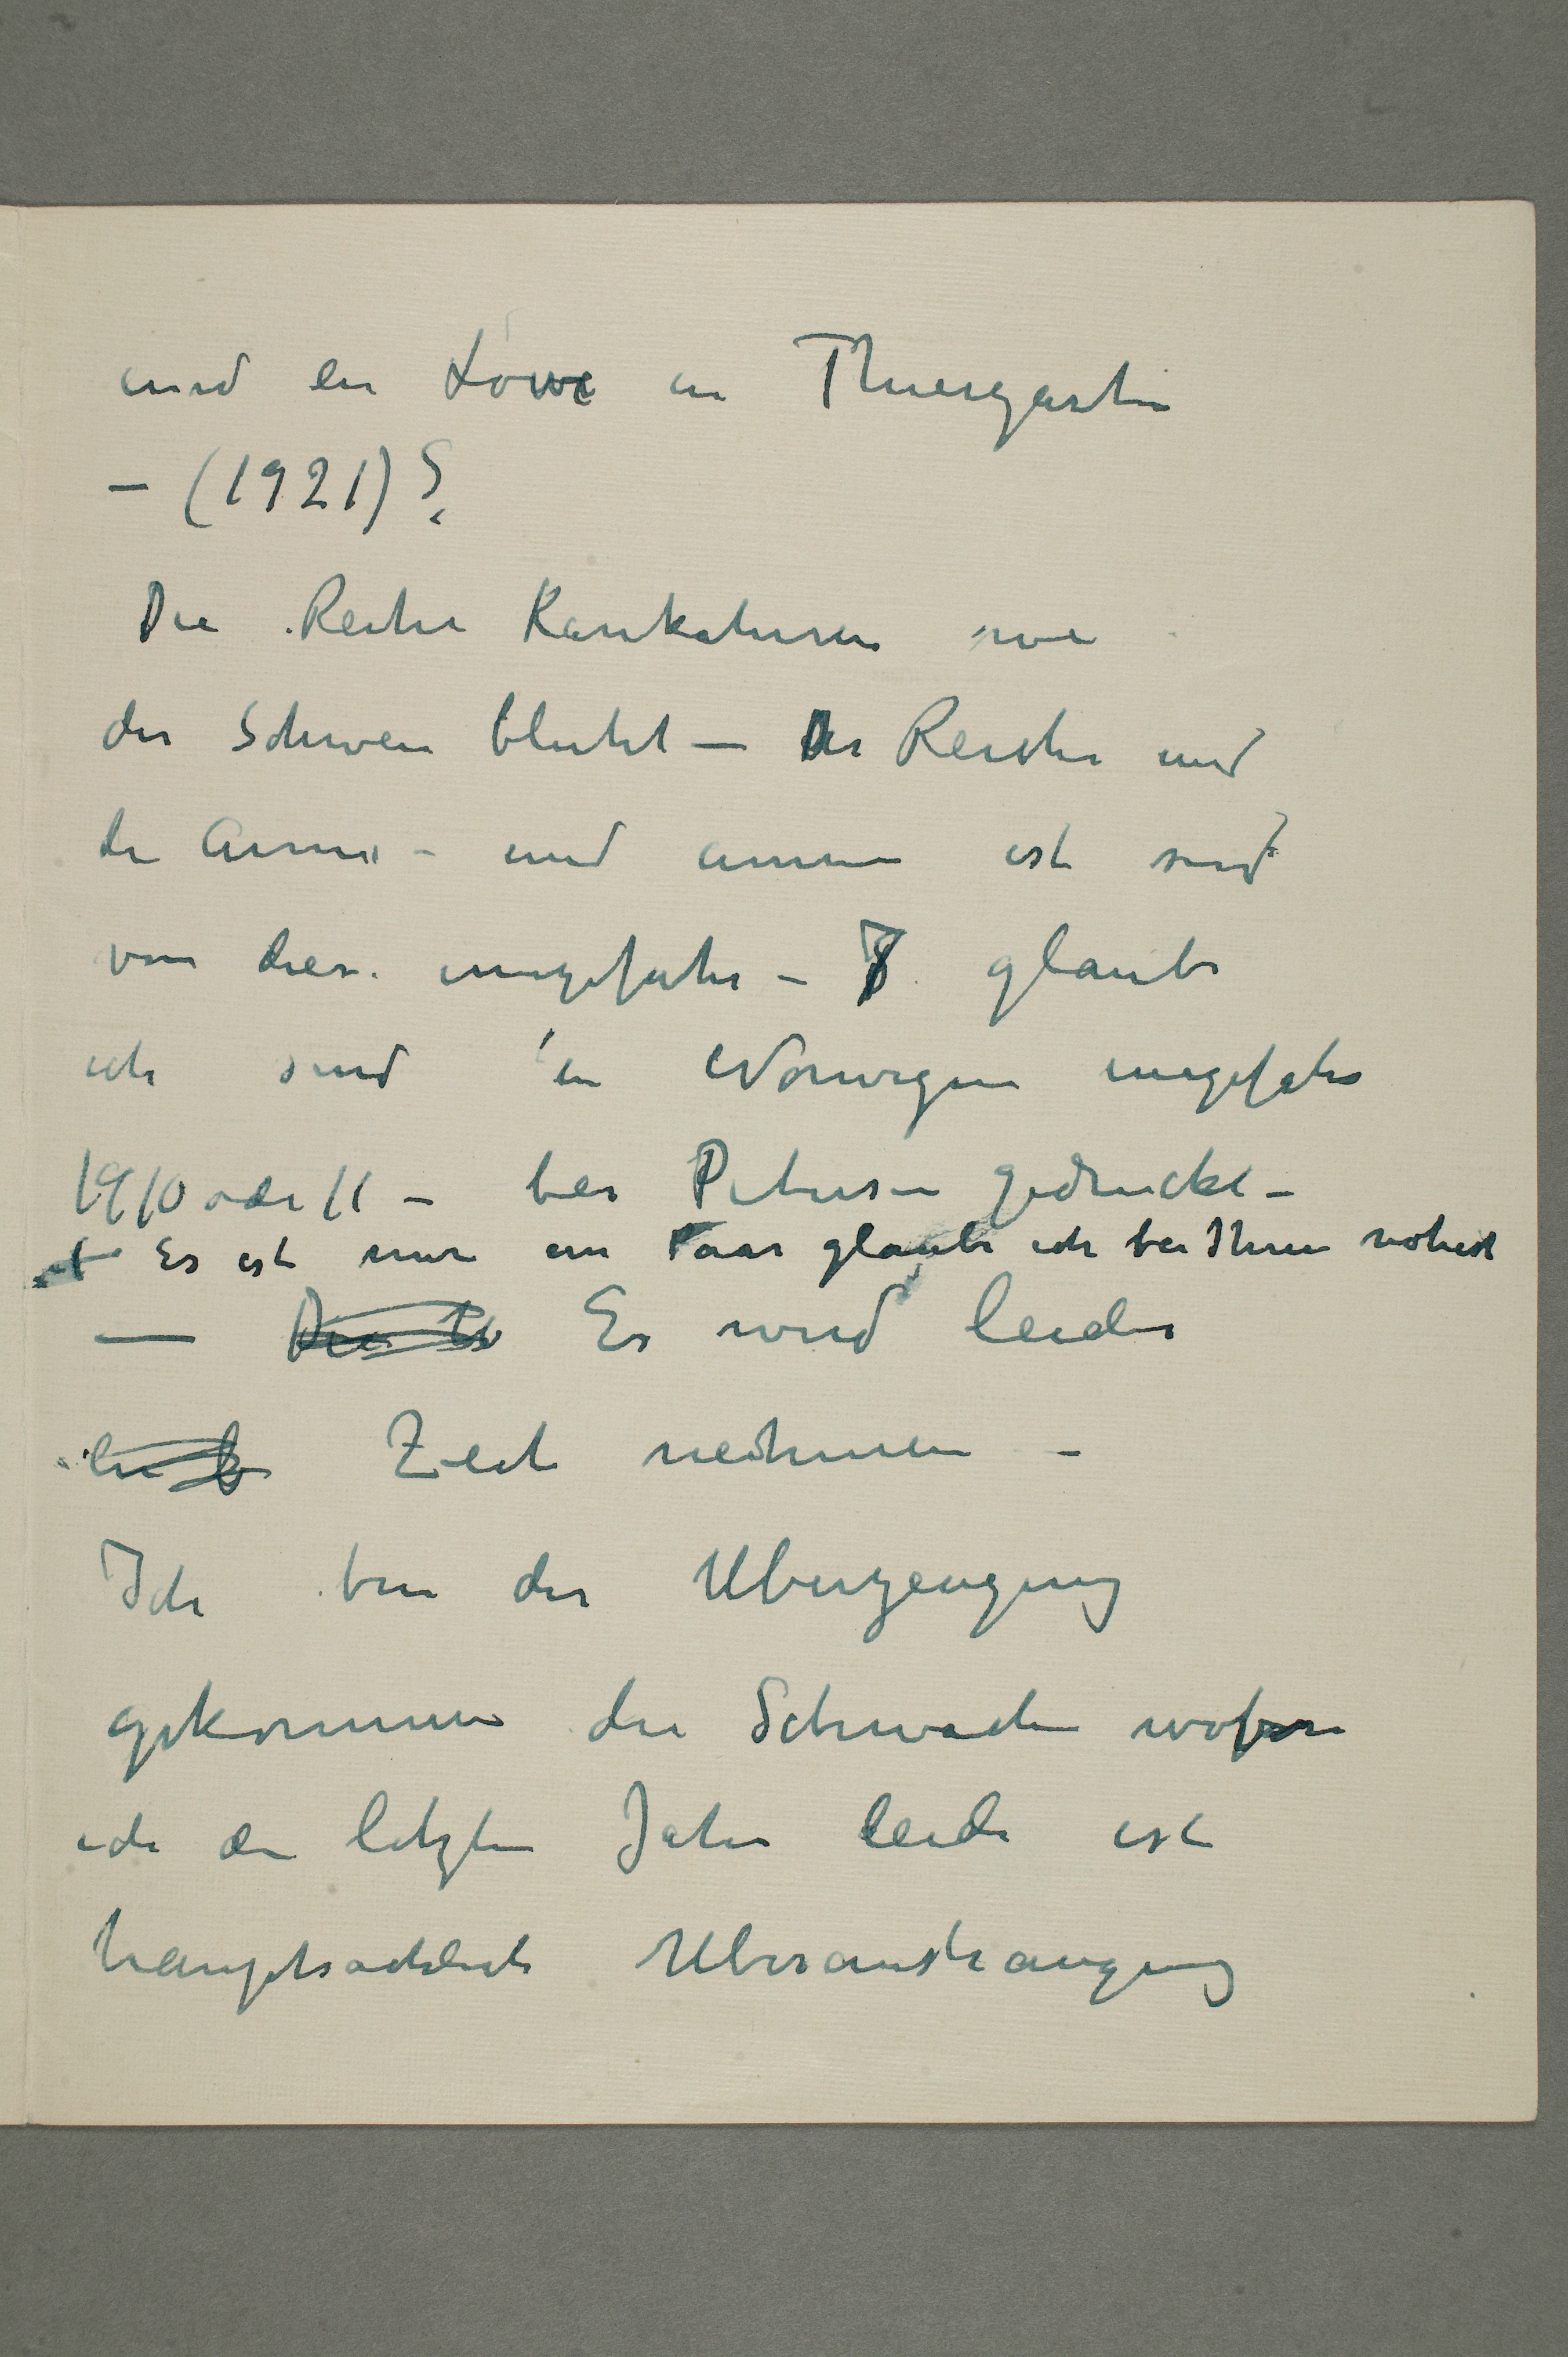 und ein Löwe in Thiergarten
– (1921)?
Die Reihe Karikaturen wie
der Schwein blutet – Der Reicher und
der Arme – und annen ist sind
von dies. ungefähr – 8 glaube
ich sind in Norwegen ungefähr
1910 oder 11 – bei Petersen gedruckt –
Es ist nur ein Paar glaube ich bei Ihnen notiert
— Die Es wird leider
Zeit nehmen –
Ich bin der Uberzeugung
gekommen die Schwäche wofon
ich den letzten Jahre leide ist
hauptsächlich Uberanstrangung